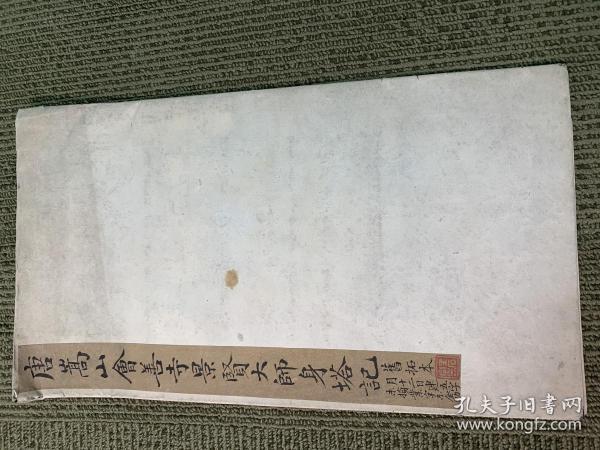 唐嵩山會善寺景賢大師身塔記
舊拓本
孔夫子旧书网
www.kongfz.com